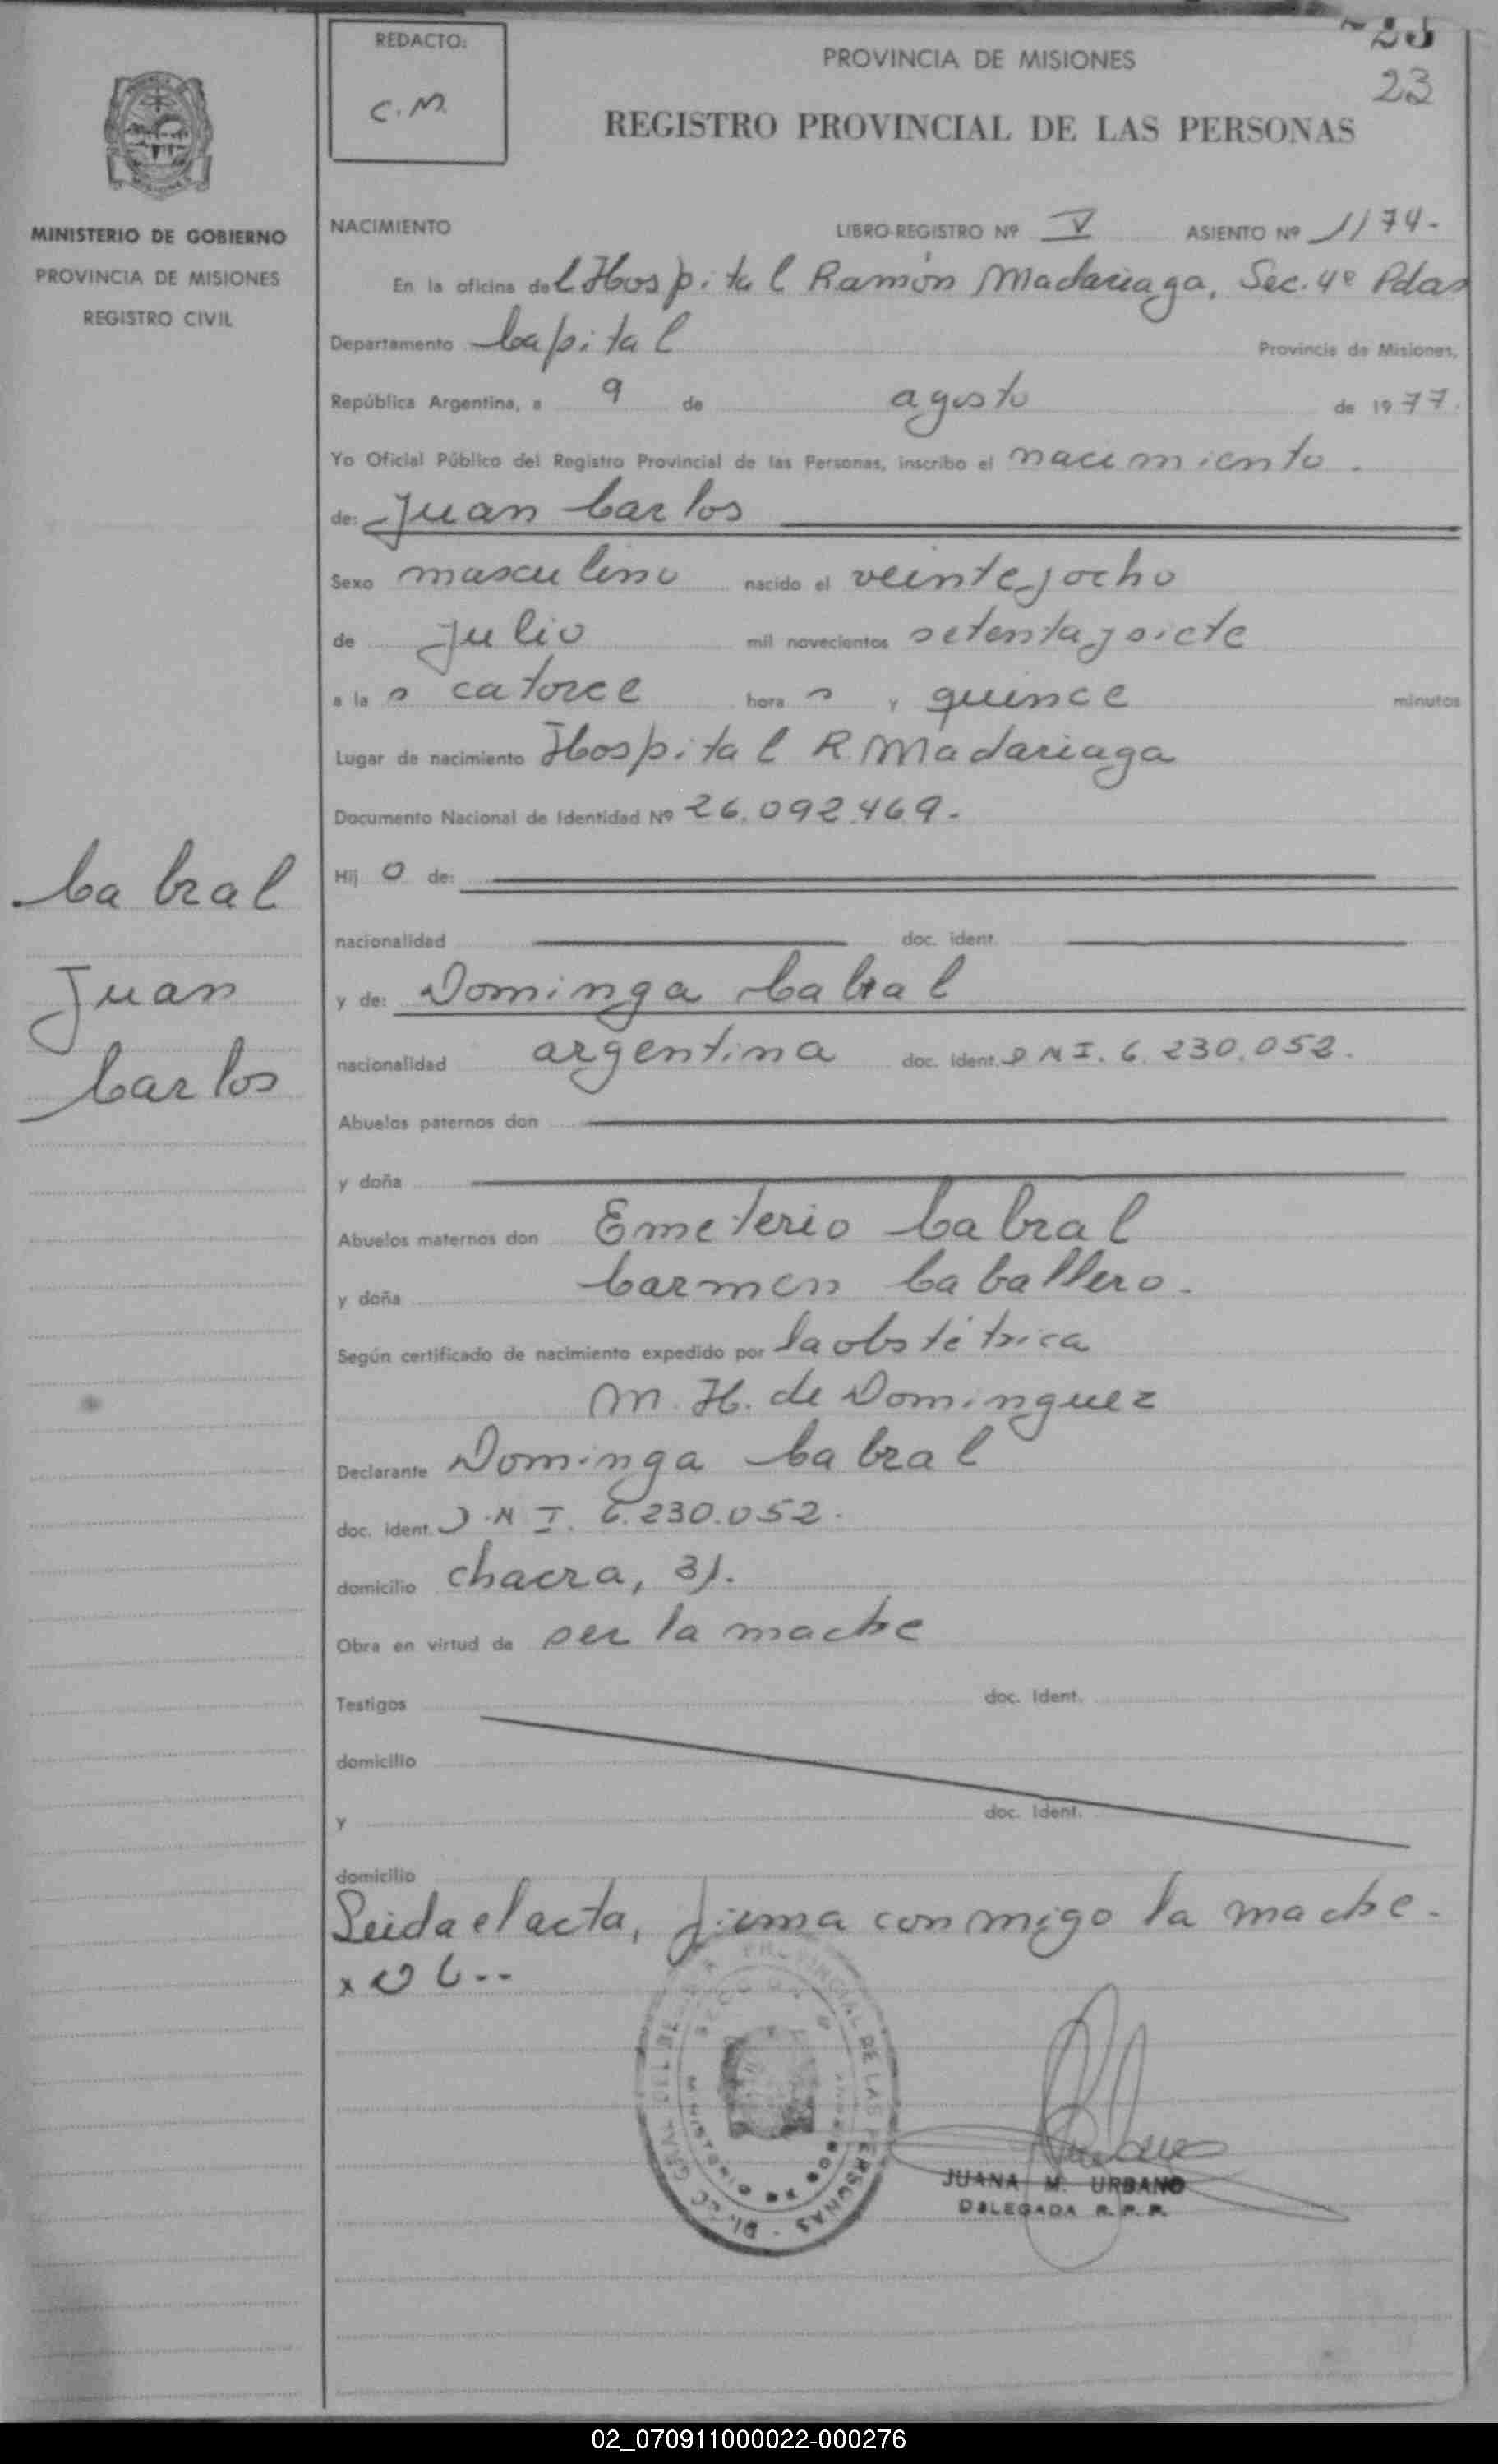 REDACTO:
C.M.
PROVINCIA DE MISIONES
23
23
REGISTRO PROVINCIAL DE LAS PERSONAS
MINISTERIO DE GOBIERNO
PROVINCIA DE MISIONES
REGISTRO CIVIL
NACIMIENTO LIBRO-REGISTRO Nº V ASIENTO Nº 1174-
En la oficina del Hospital Ramón Madariaga, Sec. 4º Pdas
Departamento Capital Provincia de Misiones,
República Argentina, a 9 de agosto de 1977.
Yo Oficial Público del Registro Provincial de las Personas, inscribo el nacimiento.
de: Juan Carlos
Sexo masculino nacido el veinteyocho
de Julio mil novecientos setentaysiete
a la s catorce hora s y quince minutos
Lugar de nacimiento Hospital R. Madariaga
Documento Nacional de Identidad Nº 26.092.469-
Hij o de:
nacionalidad doc. ident.
y de: Dominga Cabral
nacionalidad argentina doc. ident. DNI. 6.230.052.
Abuelos paternos don
y doña
Abuelos maternos don Emeterio Cabral
y doña Carmen Caballero.
Según certificado de nacimiento expedido por la obstétrica
M. H. de Dominguez
Declarante Dominga Cabral
doc. ident. D.N I. 6.230.052.
domicilio chacra, 31.
Obra en virtud de ser la madre
Testigos doc. ident.
domicilio
y doc. ident.
domicilio
Leida el acta, firma conmigo la madre.
Cabral
Juan
Carlos
JUANA M. URBANO
DELEGADA R. P. P.
02_070911000022-000276